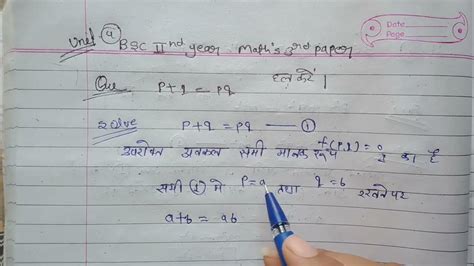 Date
Page
Unit ④
BSC II nd year Math's 3rd paper
Que P+q = Pq हल करें।
Solve P+q = Pq —— ①
उपरोक्त अवकल समी मानक रूप f(P,q)=0 का है
समी ① में P=a तथा q=b रखने पर
a+b = ab